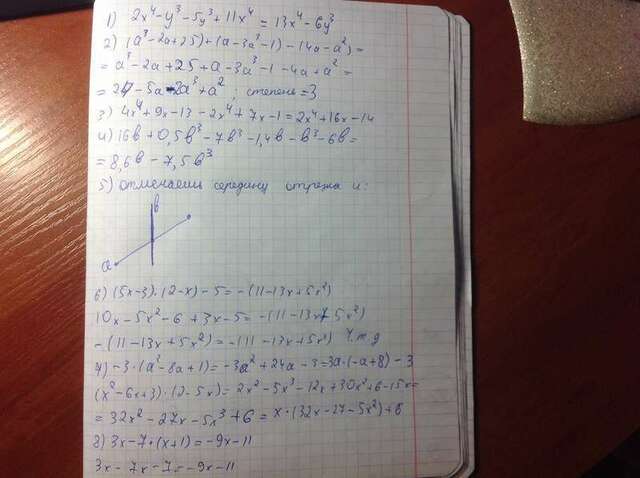 1) 2x⁴-y³-5y³+11x⁴ = 13x⁴-6y³
2) (a³-2a+25)+(a-3a³-1)-(4a-a²)=
= a³-2a+25+a-3a³-1-4a+a² =
= 24-5a-2a³+a² ; степень=3
3) 4x⁴+9x-13-2x⁴+7x-1=2x⁴+16x-14
4) 16b+0,5b³-7b³-1,4b-b³-6b=
= 8,6b-7,5b³
5) отмечаем середину отрезка и:
b
a
6) (5x-3)·(2-x)-5=-(11-13x+5x²)
10x-5x²-6+3x-5=-(11-13x+5x²)
-(11-13x+5x²)=-(11-13x+5x²) Ч.т.д
7) -3·(a²-8a+1)=-3a²+24a-3=3a·(-a+8)-3
(x²-6x+3)·(2-5x)=2x²-5x³-12x+30x²+6-15x=
= 32x²-27x-5x³+6=x·(32x-27-5x²)+6
8) 3x-7·(x+1)=-9x-11
3x-7x-7=-9x-11